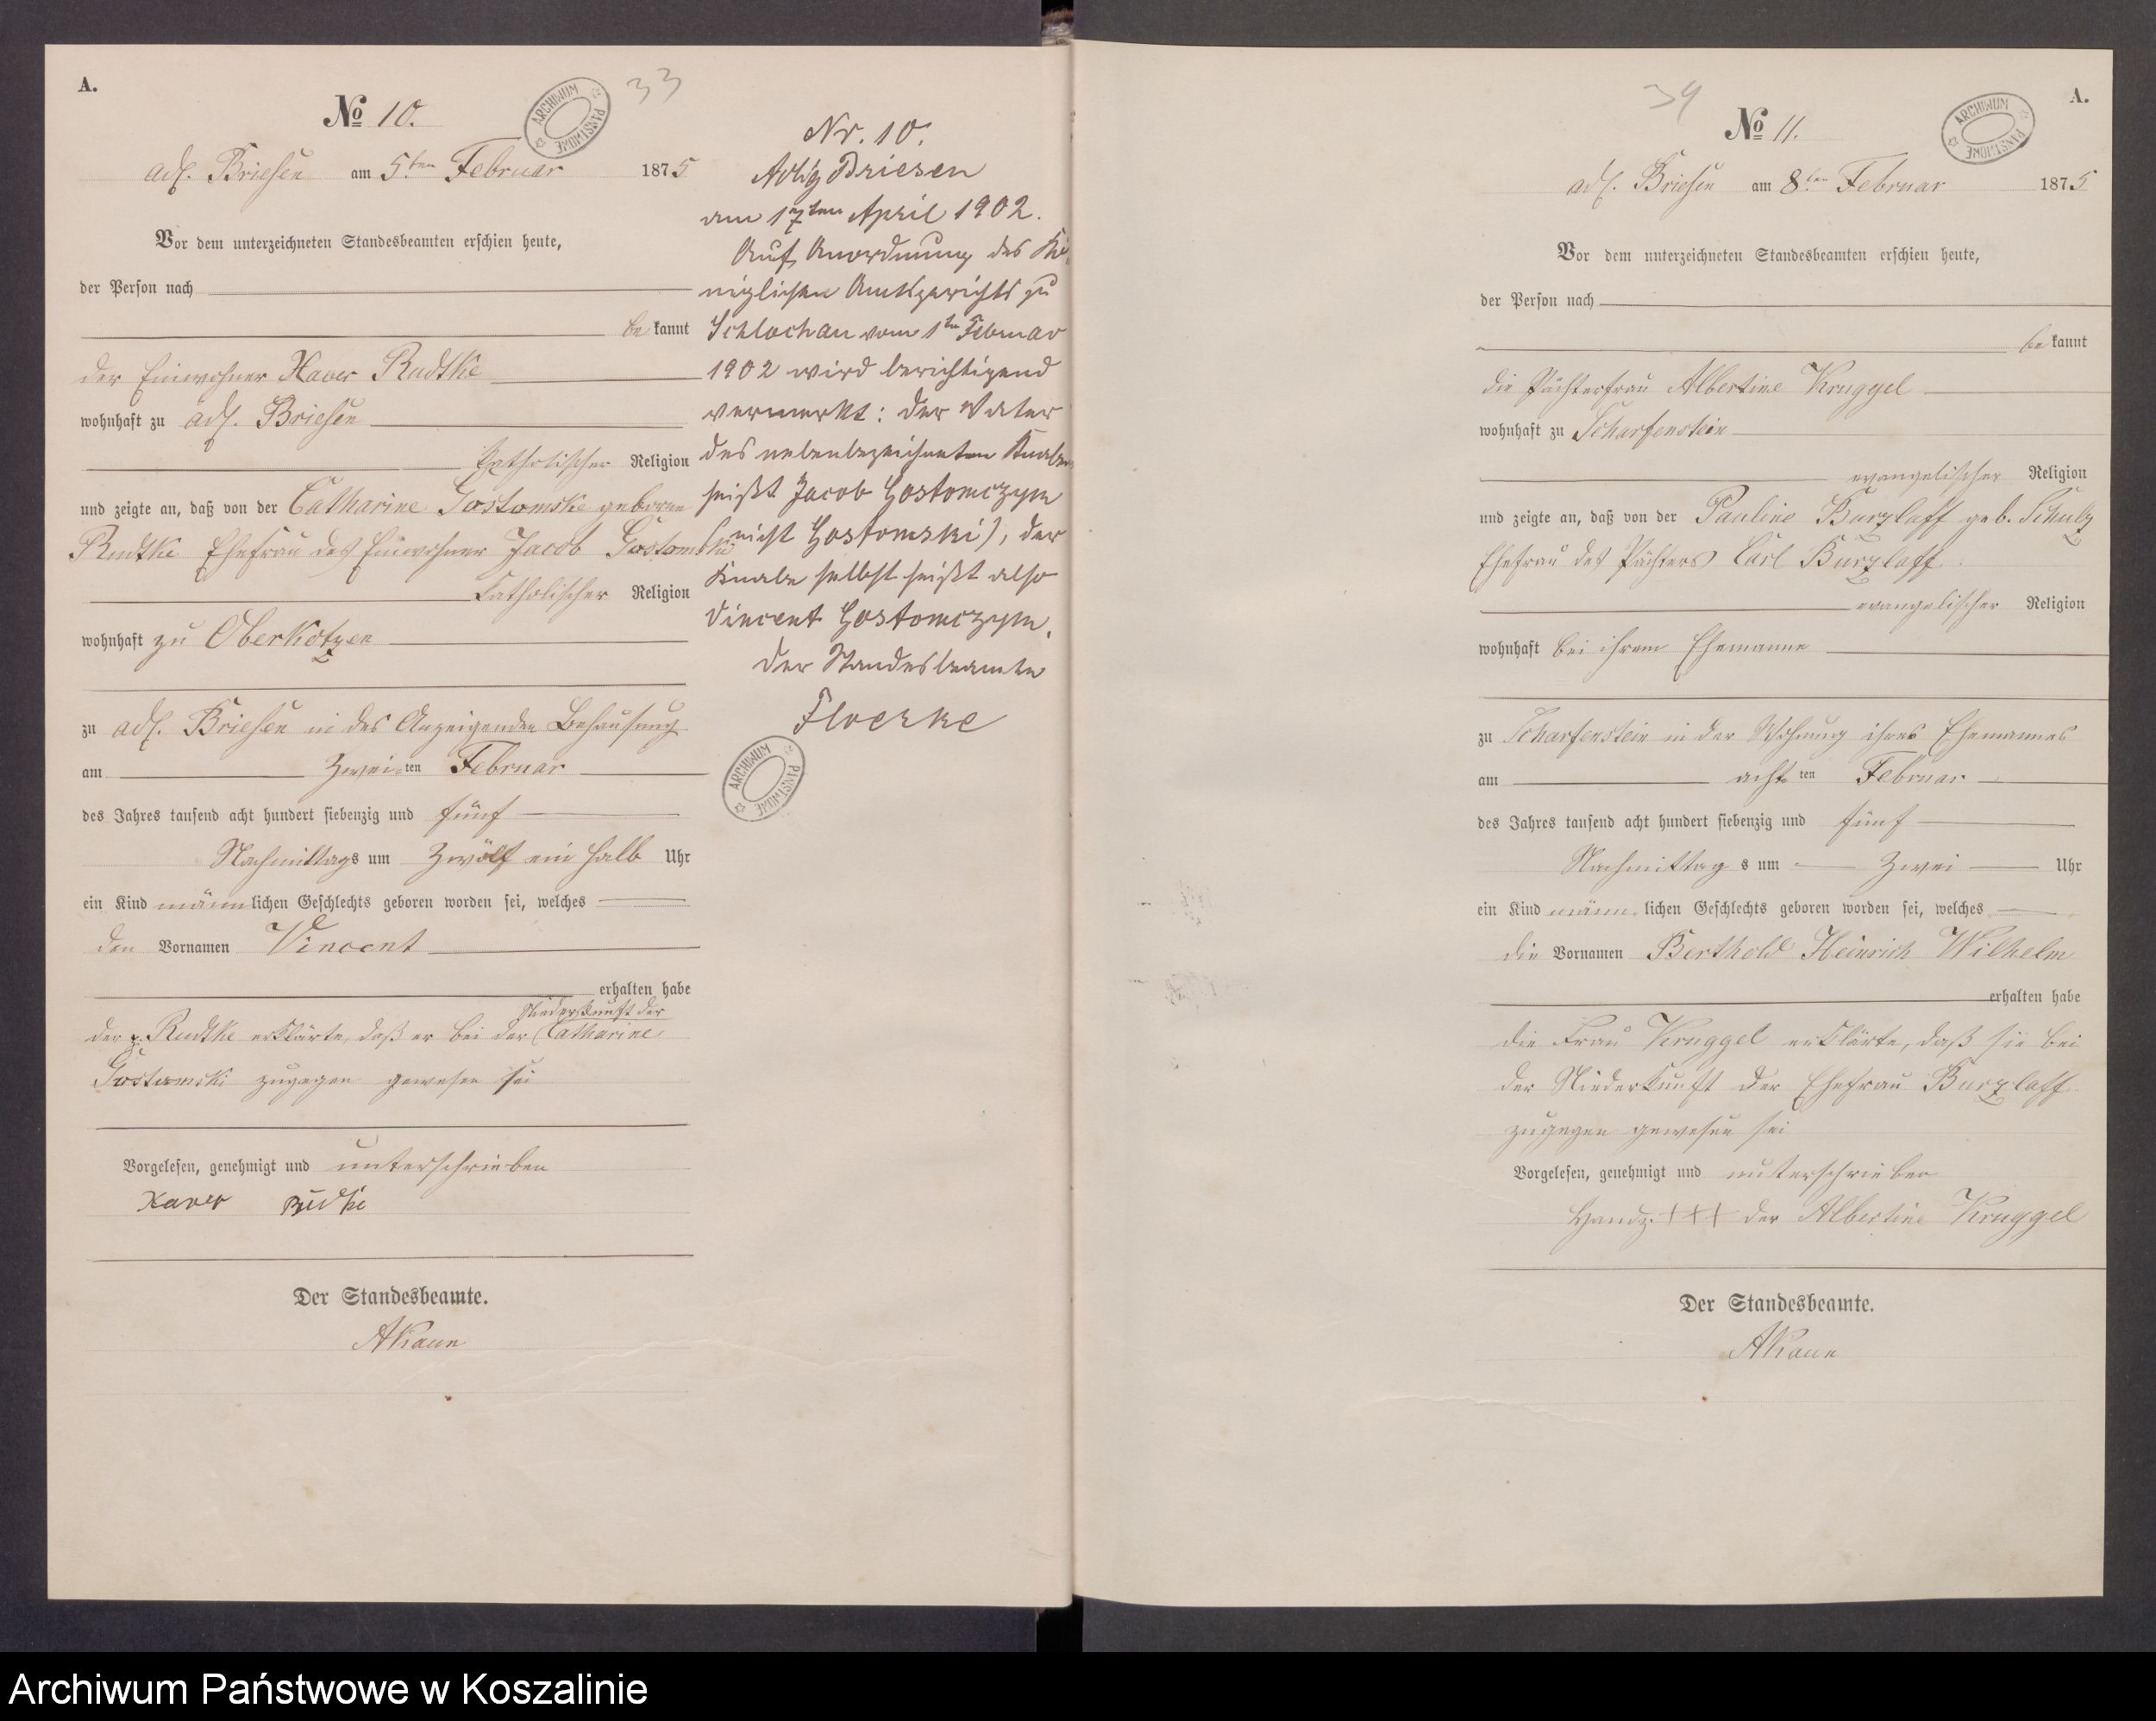 A.
No 10.
33
ARCHIWUM PAŃSTWOWE
adl. Briesen am 5ten Februar 1875
Vor dem unterzeichneten Standesbeamten erschien heute,
der Person nach
be kannt
der Einwohner Xaver Rudtke
wohnhaft zu adl. Briesen
katholischer Religion
und zeigte an, daß von der Catharine Gostomske geborne
Rudtke Ehefrau des Einwohner Jacob Gostomski
katholischer Religion
wohnhaft zu Oberkotzen
zu adl. Briesen in des Anzeigenden Behausung
am Zwei ten Februar
des Jahres tausend acht hundert siebenzig und fünf
Nachmittags um Zwölf ein halb Uhr
ein Kind männlichen Geschlechts geboren worden sei, welches
den Vornamen Vincent
erhalten habe
Niederkunft der
der p. Rudtke erklärte, daß er bei der Catharine
Gostomski zugegen gewesen sei
Vorgelesen, genehmigt und unterschrieben
Xaver Rudtke
Der Standesbeamte.
AKaun
Nr. 10.
Adlig Briesen
am 17ten April 1902.
Auf Anordnung des Kö,
niglichen Amtsgerichts zu
Schlochau vom 1ten Februar
1902 wird berichtigend
vermerkt: Der Vater
des nebenbezeichneten Knaben
heißt Jacob Gostomczym
(nicht Gostomski), der
Knabe selbst heißt also
Vincent Gostomczym.
Der Standesbeamte
Floerke
ARCHIWUM PAŃSTWOWE
34
A.
No 11.
ARCHIWUM PAŃSTWOWE
adl. Briesen am 8ten Februar 1875
Vor dem unterzeichneten Standesbeamten erschien heute,
der Person nach
be kannt
die Pächterfrau Albertine Kruggel
wohnhaft zu Scharfenstein
evangelischer Religion
und zeigte an, daß von der Pauline Burzlaff geb. Schulz
Ehefrau des Pächters Carl Burzlaff
evangelischer Religion
wohnhaft bei ihrem Ehemanne
zu Scharfenstein in der Wohnung ihres Ehemannes
am acht ten Februar
des Jahres tausend acht hundert siebenzig und fünf
Nachmittag s um Zwei Uhr
ein Kind männ lichen Geschlechts geboren worden sei, welches
die Vornamen Berthold Heinrich Wilhelm
erhalten habe
die Frau Kruggel erklärte, daß sie bei
der Niederkunft der Ehefrau Burzlaff
zugegen gewesen sei
Vorgelesen, genehmigt und unterschrieben
Handz. +++ der Albertine Kruggel
Der Standesbeamte.
AKaun
Archiwum Państwowe w Koszalinie